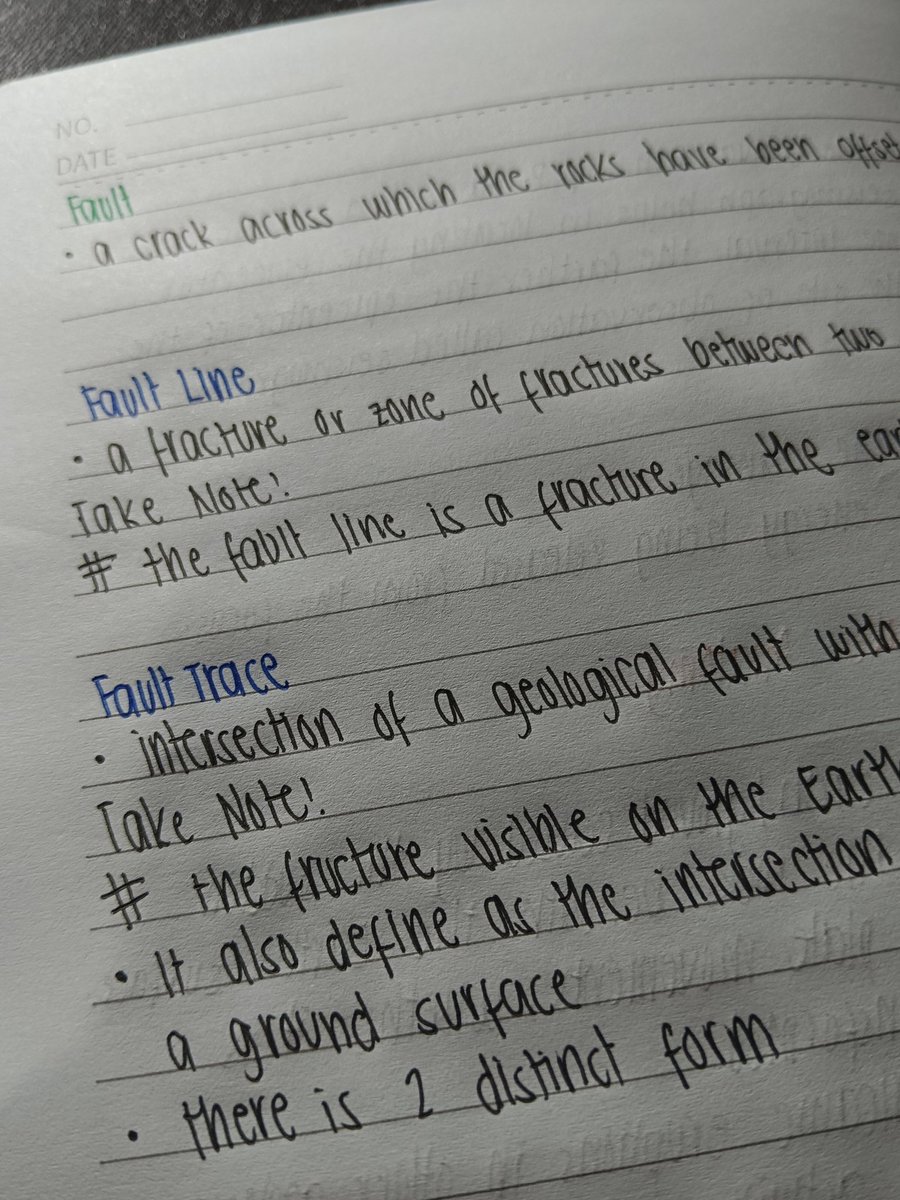 NO.
DATE
Fault
• a crack across which the rocks have been offset
Fault Line
• a fracture or zone of fractures between two
Take Note!
# the fault line is a fracture in the ear
Fault Trace
• intersection of a geological fault with
Take Note!
# the fructure visible on the Earth
• It also define as the intersection
a ground surface
• there is 2 distinct form